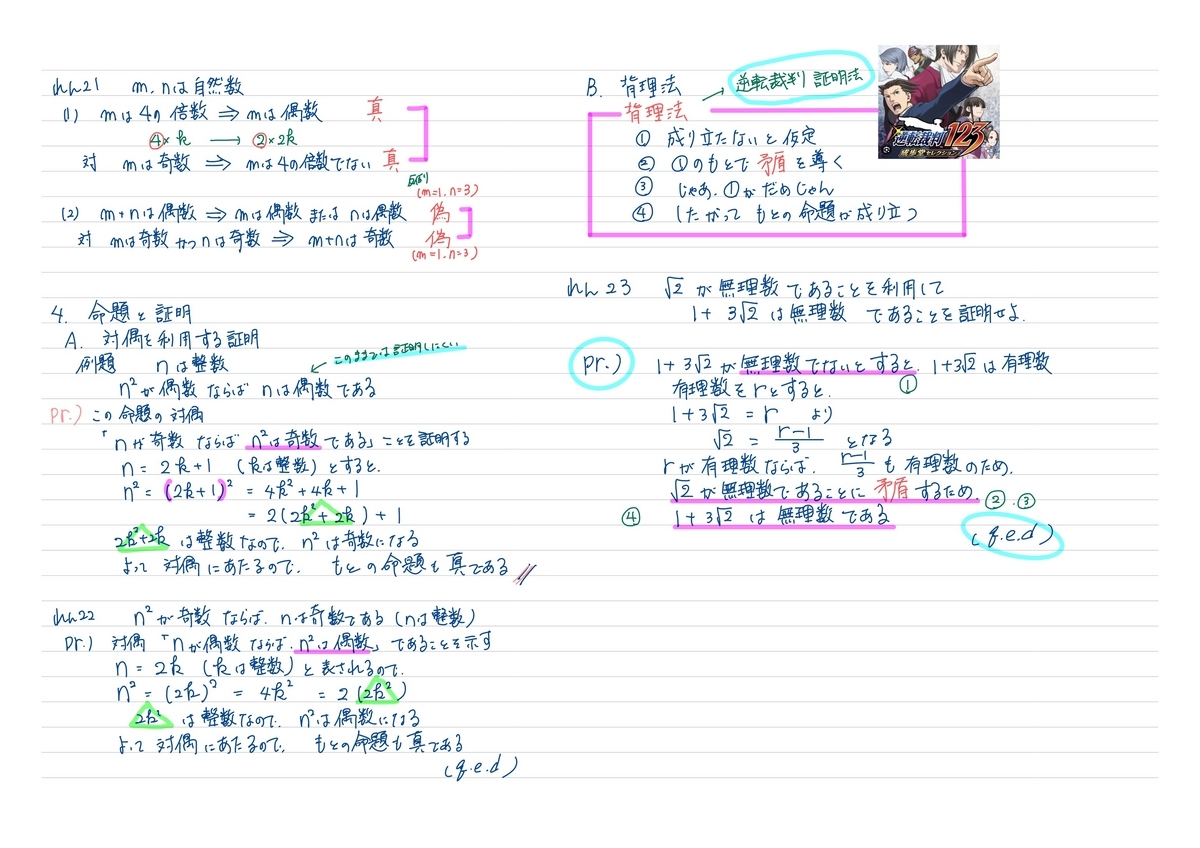 れん21 m.nは自然数
(1) mは4の倍数 ⇒ mは偶数 真
4×k → 2×2k
対 mは奇数 ⇒ mは4の倍数でない 真
反例
(m=1.n=3)
(2) m+nは偶数 ⇒ mは偶数 または nは偶数 偽
対 mは奇数 かつ nは奇数 ⇒ m+nは奇数 偽
(m=1.n=3)
4. 命題と証明
A. 対偶を利用する証明
例題 nは整数
このままでは証明しにくい
n²が偶数 ならば nは偶数である
pr.) この命題の対偶
「nが奇数 ならば n²は奇数である」ことを証明する
n = 2k+1 (kは整数) とすると.
n² = (2k+1)² = 4k²+4k+1
= 2(2k²+2k)+1
2k²+2kは整数なので. n²は奇数になる
よって 対偶にあたるので. もとの命題も真である //
れん22 n²が奇数 ならば. nは奇数である (nは整数)
pr.) 対偶「nが偶数 ならば. n²は偶数」であることを示す
n = 2k (kは整数) と表されるので.
n² = (2k)² = 4k² = 2(2k²)
2k² は整数なので. n²は偶数になる
よって 対偶にあたるので. もとの命題も真である
(q.e.d)
B. 背理法 → 逆転裁判 証明法
背理法
① 成り立たないと仮定
② ①のもとで 矛盾 を導く
③ じゃあ.①がだめじゃん
④ したがって もとの命題が成り立つ
逆転裁判123
成歩堂セレクション
れん23 √2が無理数であることを利用して
1+3√2は無理数 であることを証明せよ.
pr.) 1+3√2が無理数でないとすると. 1+3√2は有理数
①
有理数をrとすると.
1+3√2 = r より
√2 = (r-1)/3 となる
rが有理数ならば. (r-1)/3 も有理数のため.
√2が無理数であることに 矛盾 するため. ②.③
④ 1+3√2は無理数である
(q.e.d)